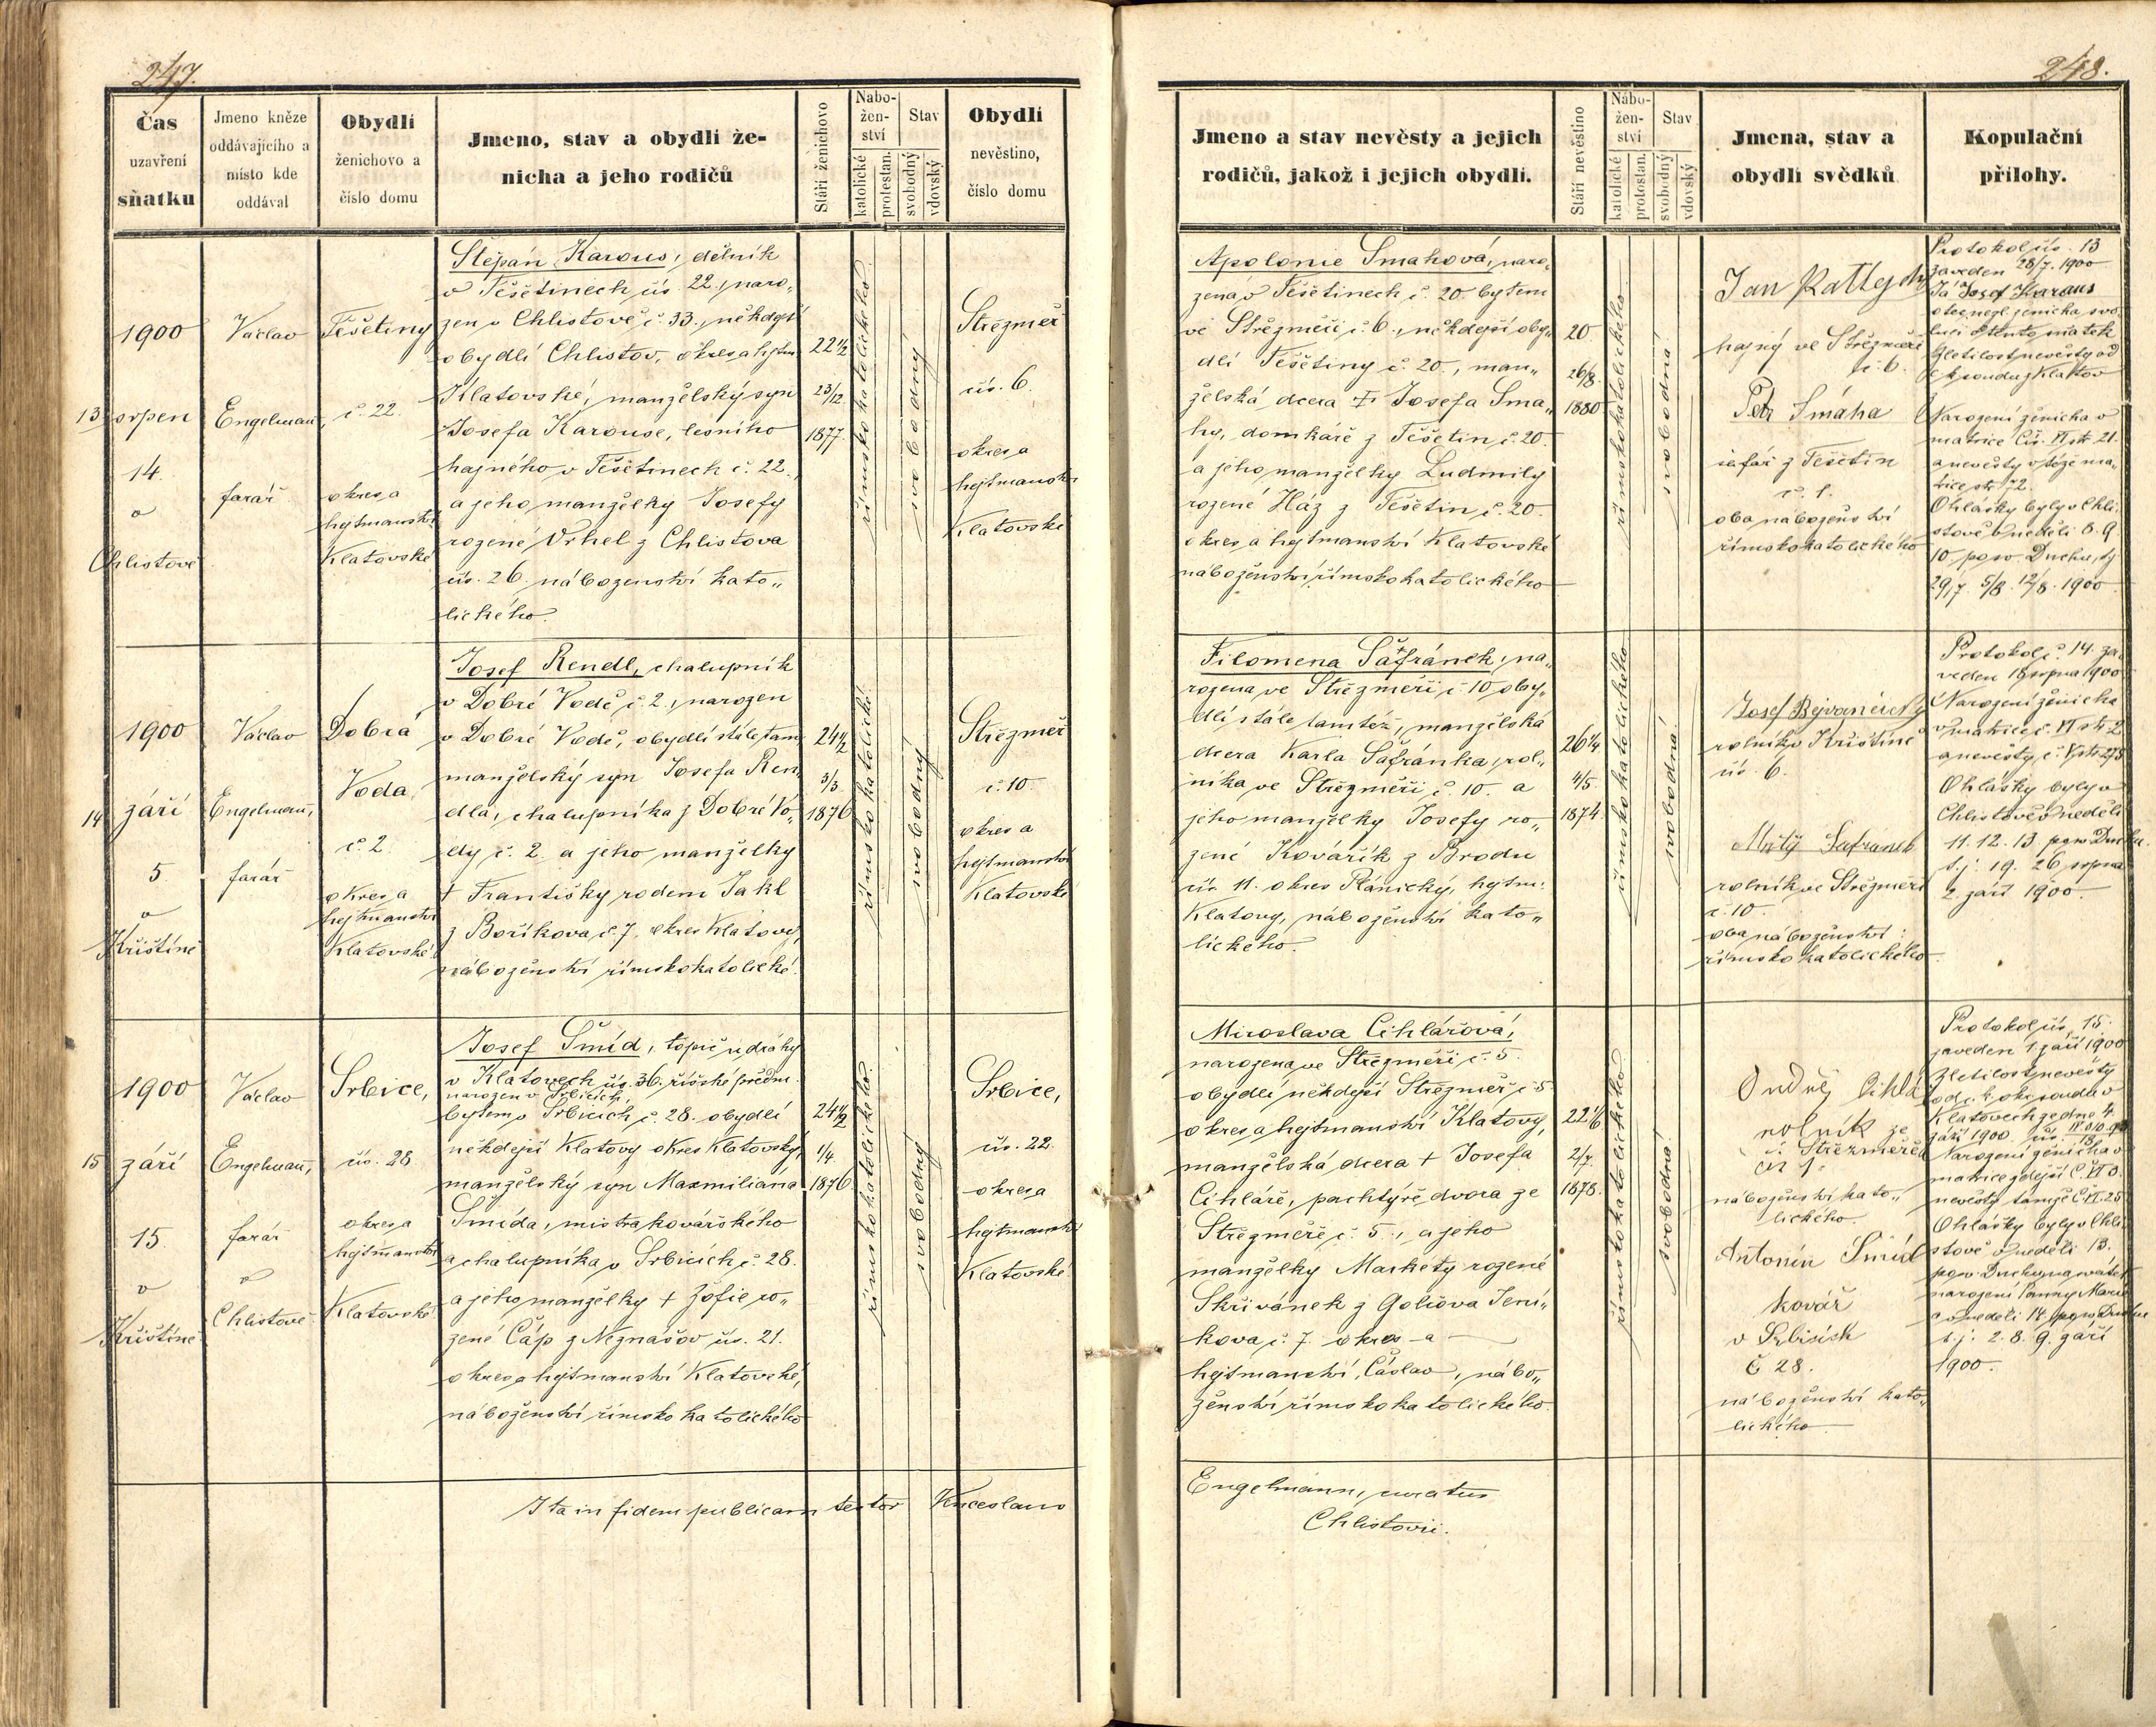 247.
Čas
uzavření
sňatku
Jmeno kněze
oddávajicího a
místo kde
oddával
Obydlí
ženichovo a
číslo domu
Jmeno, stav a obydlí že-
nicha a jeho rodičů
Stáří ženichovo
Nabo-
žen-
ství
katolické
protestan.
Stav
svobodný
vdovský
Obydlí
nevěstino,
číslo domu
13
1900
srpen
14.
v
Chlistově
Václav
Engelmann,
farář
Těšetiny
č. 22.
okres a
hejtmanství
Klatovské
Štěpán Karous, dělník
v Těšetinech čís. 22., naro„
zen v Chlistově č. 33., někdejší
obydlí Chlistov, okres a hejtm.
Klatovské, manželský syn
Josefa Karouse, lesního
hajného v Těšetinech č. 22.
a jeho manželky Josefy
rozené Vrhel z Chlistova
čís. 26. náboženství kato„
lického.
22 1/2
23/12
1877.
římskokatolického
svobodný
Střezměř
čís. 6.
okres a
hejtmanství
Klatovské
14
1900
září
5.
v
Křištíně
Václav
Engelmann,
farář
Dobrá
Voda
č. 2.
okres a
hejtmanství
Klatovské
Josef Rendl, chalupník
v Dobré Vodě č. 2., narozen
v Dobré Vodě, obydlí stále tam
manželský syn Josefa Ren„
dla, chalupníka z Dobré Vo„
dy č. 2. a jeho manželky
† Františky rodem Jakl
z Boříkova č. 7. okres Klatovy,
náboženství římskokatolické.
24 1/2
3/3.
1876
římskokatolické
svobodný
Střezměř
č. 10.
okres a
hejtmanství
Klatovské
15
1900
září
15.
v
Křištíně
Václav
Engelmann,
farář
v
Chlistově
Srbice,
čís. 28
okres a
hejtmanství
Klatovské
Josef Šmíd, topič u dráhy
v Klatovech čís. 36. říšské předm.
narozen v Srbicích,
bytem v Srbicích č. 28. obydlí
někdejší Klatovy okres Klatovský,
manželský syn Maxmiliána
Šmída, mistra kovářského
a chalupníka v Srbicích č. 28.
a jeho manželky † Žofie ro„
zené Čáp z Neznašov čís. 21.
okres a hejtmanství Klatovské,
náboženství římskokatolického
24 1/2
1/4.
1876.
římskokatolického.
svobodný
Srbice,
čís. 22.
okres a
hejtmanství
Klatovské.
Ita in fidem publicam testor Venceslaus
248.
Jmeno a stav nevěsty a jejich
rodičů, jakož i jejich obydlí.
Stáří nevěstino
Nábo-
žen-
ství
katolické
protostan.
Stav
svobodný
vdovský
Jmena, stav a
obydlí svědků
Kopulační
přílohy.
Apolonie Smahová, naro„
zená v Těšetinech č. 20. bytem
ve Střezměři č. 6., někdejší oby„
dlí Těšetiny č. 20., man„
želská dcera † Josefa Sma„
hy, domkáře z Těšetin č. 20.
a jeho manželky Ludmily
rozené Ház z Těšetin č. 20.
okres a hejtmanství Klatovské
náboženství římskokatolického
20
26/8.
1880
římskokatolického
svobodná
hajný ve Střezměři
č. 6.
Petr Smáha
šafář z Těšetin
č. 1.
oba náboženství
římskokatolického
Protokol čís. 13
zaveden 28/7. 1900
Já Josef Karous
Narození ženicha v
matrice Čís. VI str. 21.
a nevěsty v téže ma„
trice str. 72.
Ohlášky byly v Chli„
stově v neděli 8. 9.
10 po sv. Duchu, tj.
29/7. 5/8. 12/8. 1900
Filomena Šafránek, na„
rozena ve Střezměři č. 10, oby„
dlí stále tamtéž, manželská
dcera Karla Šafránka, rol„
níka ve Střezměři č. 10. a
jeho manželky Josefy ro„
zené Kovářík z Brodu
čís. 11. okres Plánický, hejtm.
Klatovy, náboženství kato„
lického.
26 1/4
4/5.
1874.
římskokatolického
svobodná.
rolník v Křištíně
čís. 6.
Šafránek
rolník ve Střezměři
č. 10.
oba náboženství
římskokatolického.
Protokol č. 14. za„
veden 18 srpna 1900
Narození ženicha
v matrice č. VI str. 2
a nevěsty, č. V str. 275
Ohlášky byly v
Chlistově v neděli
11. 12. 13. po sv. Duchu.
t. j. 19. 26. srpna
2. září 1900.
Miroslava Cihlářová,
narozena ve Střezměři č. 5.
obydlí někdejší Střezměř č. 5
okres a hejtmanství Klatovy,
manželská dcera † Josefa
Cihláře, pachtýře dvora ze
Střezměře č. 5., a jeho
manželky Markéty rozené
Skřivánek z Golčova Jení„
kova č. 7. okres a
hejtmanství Čáslav, nábo„
ženství římskokatolického.
22 1/6
2/7.
1878.
římskokatolického
svobodná.
Ondřej Cihlá
rolník ze
Střezměře
čís 1.
náboženství kato„
lického.
Antonín Šmíd
kovář
v Srbicích
č 28.
náboženství kato„
lického
Protokol čís. 15.
zaveden 1. září 1900
Zletilost nevěsty
od c. k. okr. soudu v
Klatovech ze dne 4.
září 1900
Narození ženicha v
matrice zdejší
nevěsty tamže
Ohlášky byly v Chli„
stově v neděli 13.
po sv. Duchu, na svátek
narození Panny Marie
a v neděli 14. po sv. Duchu
t. j. 2. 8. 9. září
1900.
Engelmann, curatus
Chlistovii.